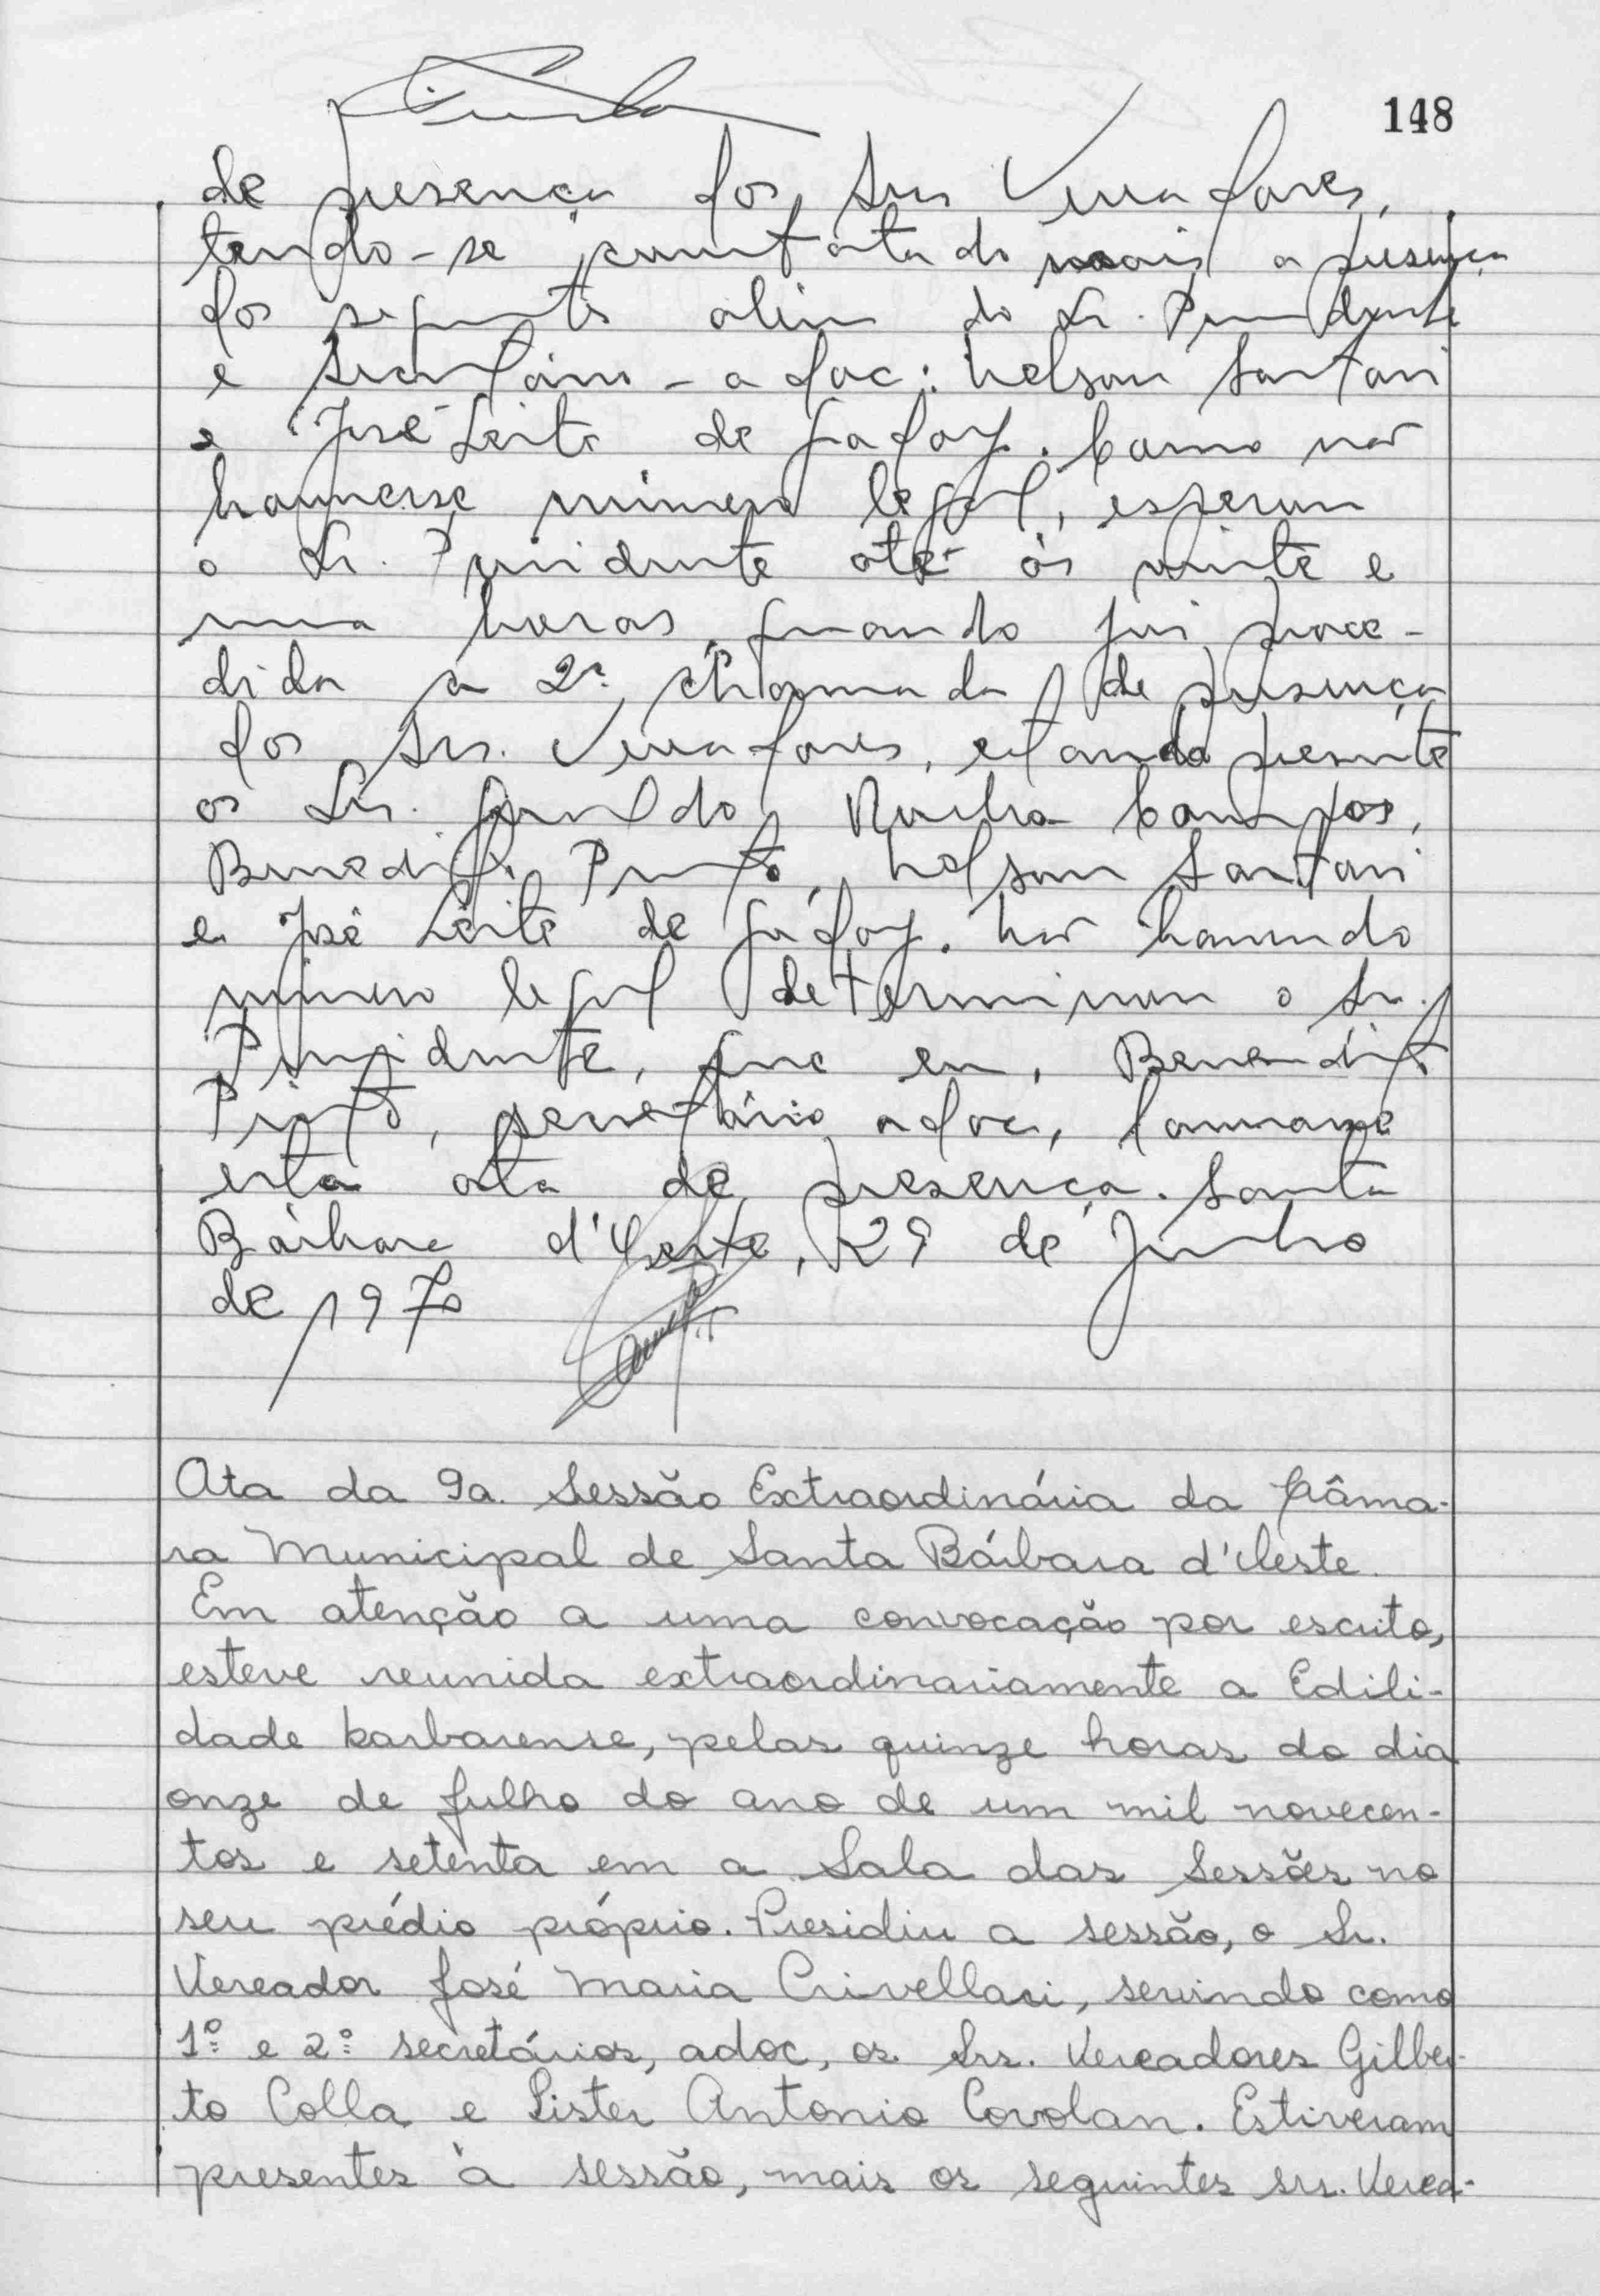 148
de presença dos Srs Vereadores,
tendo-se constatado mais a presença
dos seguintes além do Sr. Presidente
e Secretário-adoc: Nelson Santari
e José Leite de Godoy. Como não
houvesse número legal, esperou
o Sr. Presidente até às vinte e
uma horas, quando foi proce-
dida a 2ª chamada de presença
dos Srs. Vereadores, estando presente
os Srs. Geraldo Rocha Campos,
Benedito Pinto, Nelson Santari
e José Leite de Godoy. Não havendo
número legal determinou o Sr.
Presidente, que eu, Benedito
Pinto, secretário adoc, lavrasse
esta ata de presença. Santa
Bárbara d'Oeste, 29 de Junho
de 1970
Ata da 9a. Sessão Extraordinária da Câma-
ra Municipal de Santa Bárbara d'Oeste.
Em atenção a uma convocação por escrito,
esteve reunida extraordinariamente a Edili-
dade barbarense, pelas quinze horas do dia
onze de julho do ano de um mil novecen-
tos e setenta em a Sala das Sessões no
seu prédio próprio. Presidiu a sessão, o Sr.
Vereador José Maria Crivellari, servindo como
1º e 2º secretários, adoc, os Srs. Vereadores Gilber-
to Colla e Lister Antonio Covolan. Estiveram
presentes à sessão, mais os seguintes srs. Verea-